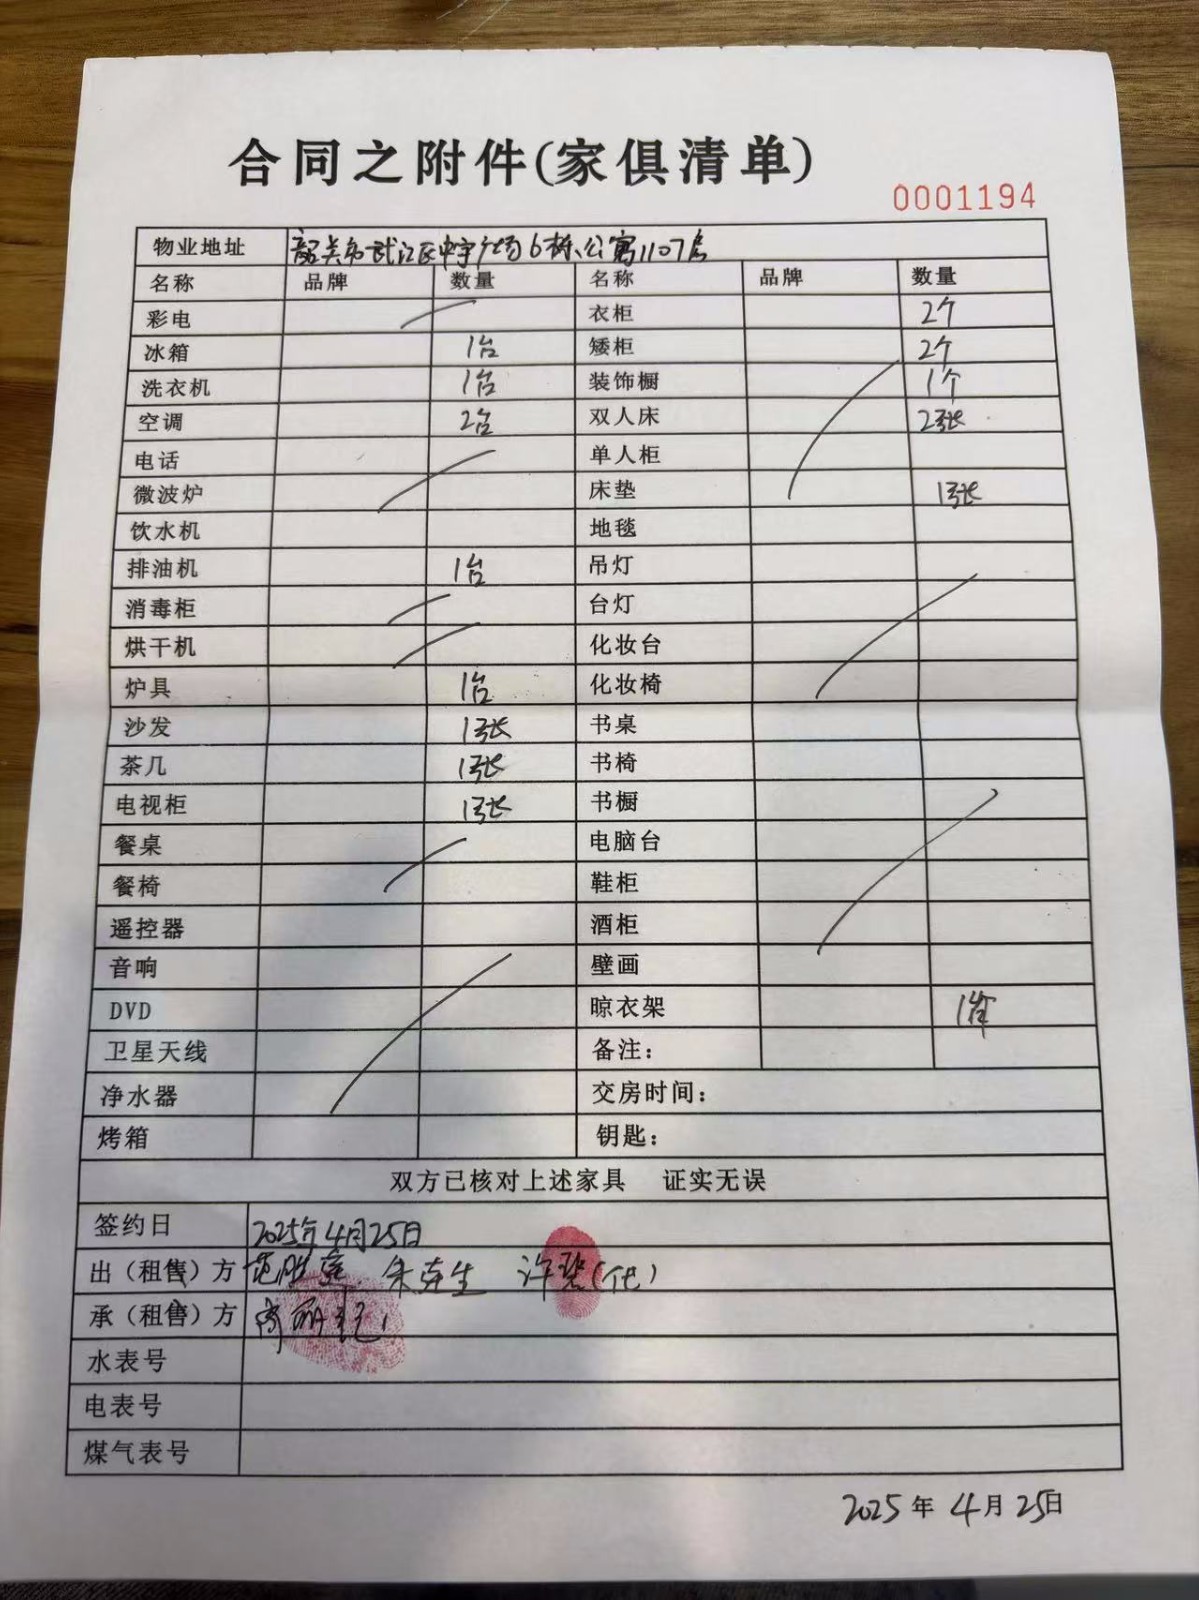 合同之附件(家俱清单)
0001194
物业地址 韶关市武江区中宇广场6栋公寓1107房
名称 品牌 数量 名称 品牌 数量
彩电 衣柜 2个
冰箱 1台 矮柜 2个
洗衣机 1台 装饰橱 1个
空调 2台 双人床 2张
电话 单人柜
微波炉 床垫 1张
饮水机 地毯
排油机 1台 吊灯
消毒柜 台灯
烘干机 化妆台
炉具 1台 化妆椅
沙发 1张 书桌
茶几 1张 书椅
电视柜 1张 书橱
餐桌 电脑台
餐椅 鞋柜
遥控器 酒柜
音响 壁画
DVD 晾衣架 1
卫星天线 备注：
净水器 交房时间：
烤箱 钥匙：
双方已核对上述家具 证实无误
签约日 2025年4月25日
出（租售）方 朱连生 许 (代)
承（租售）方
水表号
电表号
煤气表号
2025年4月25日